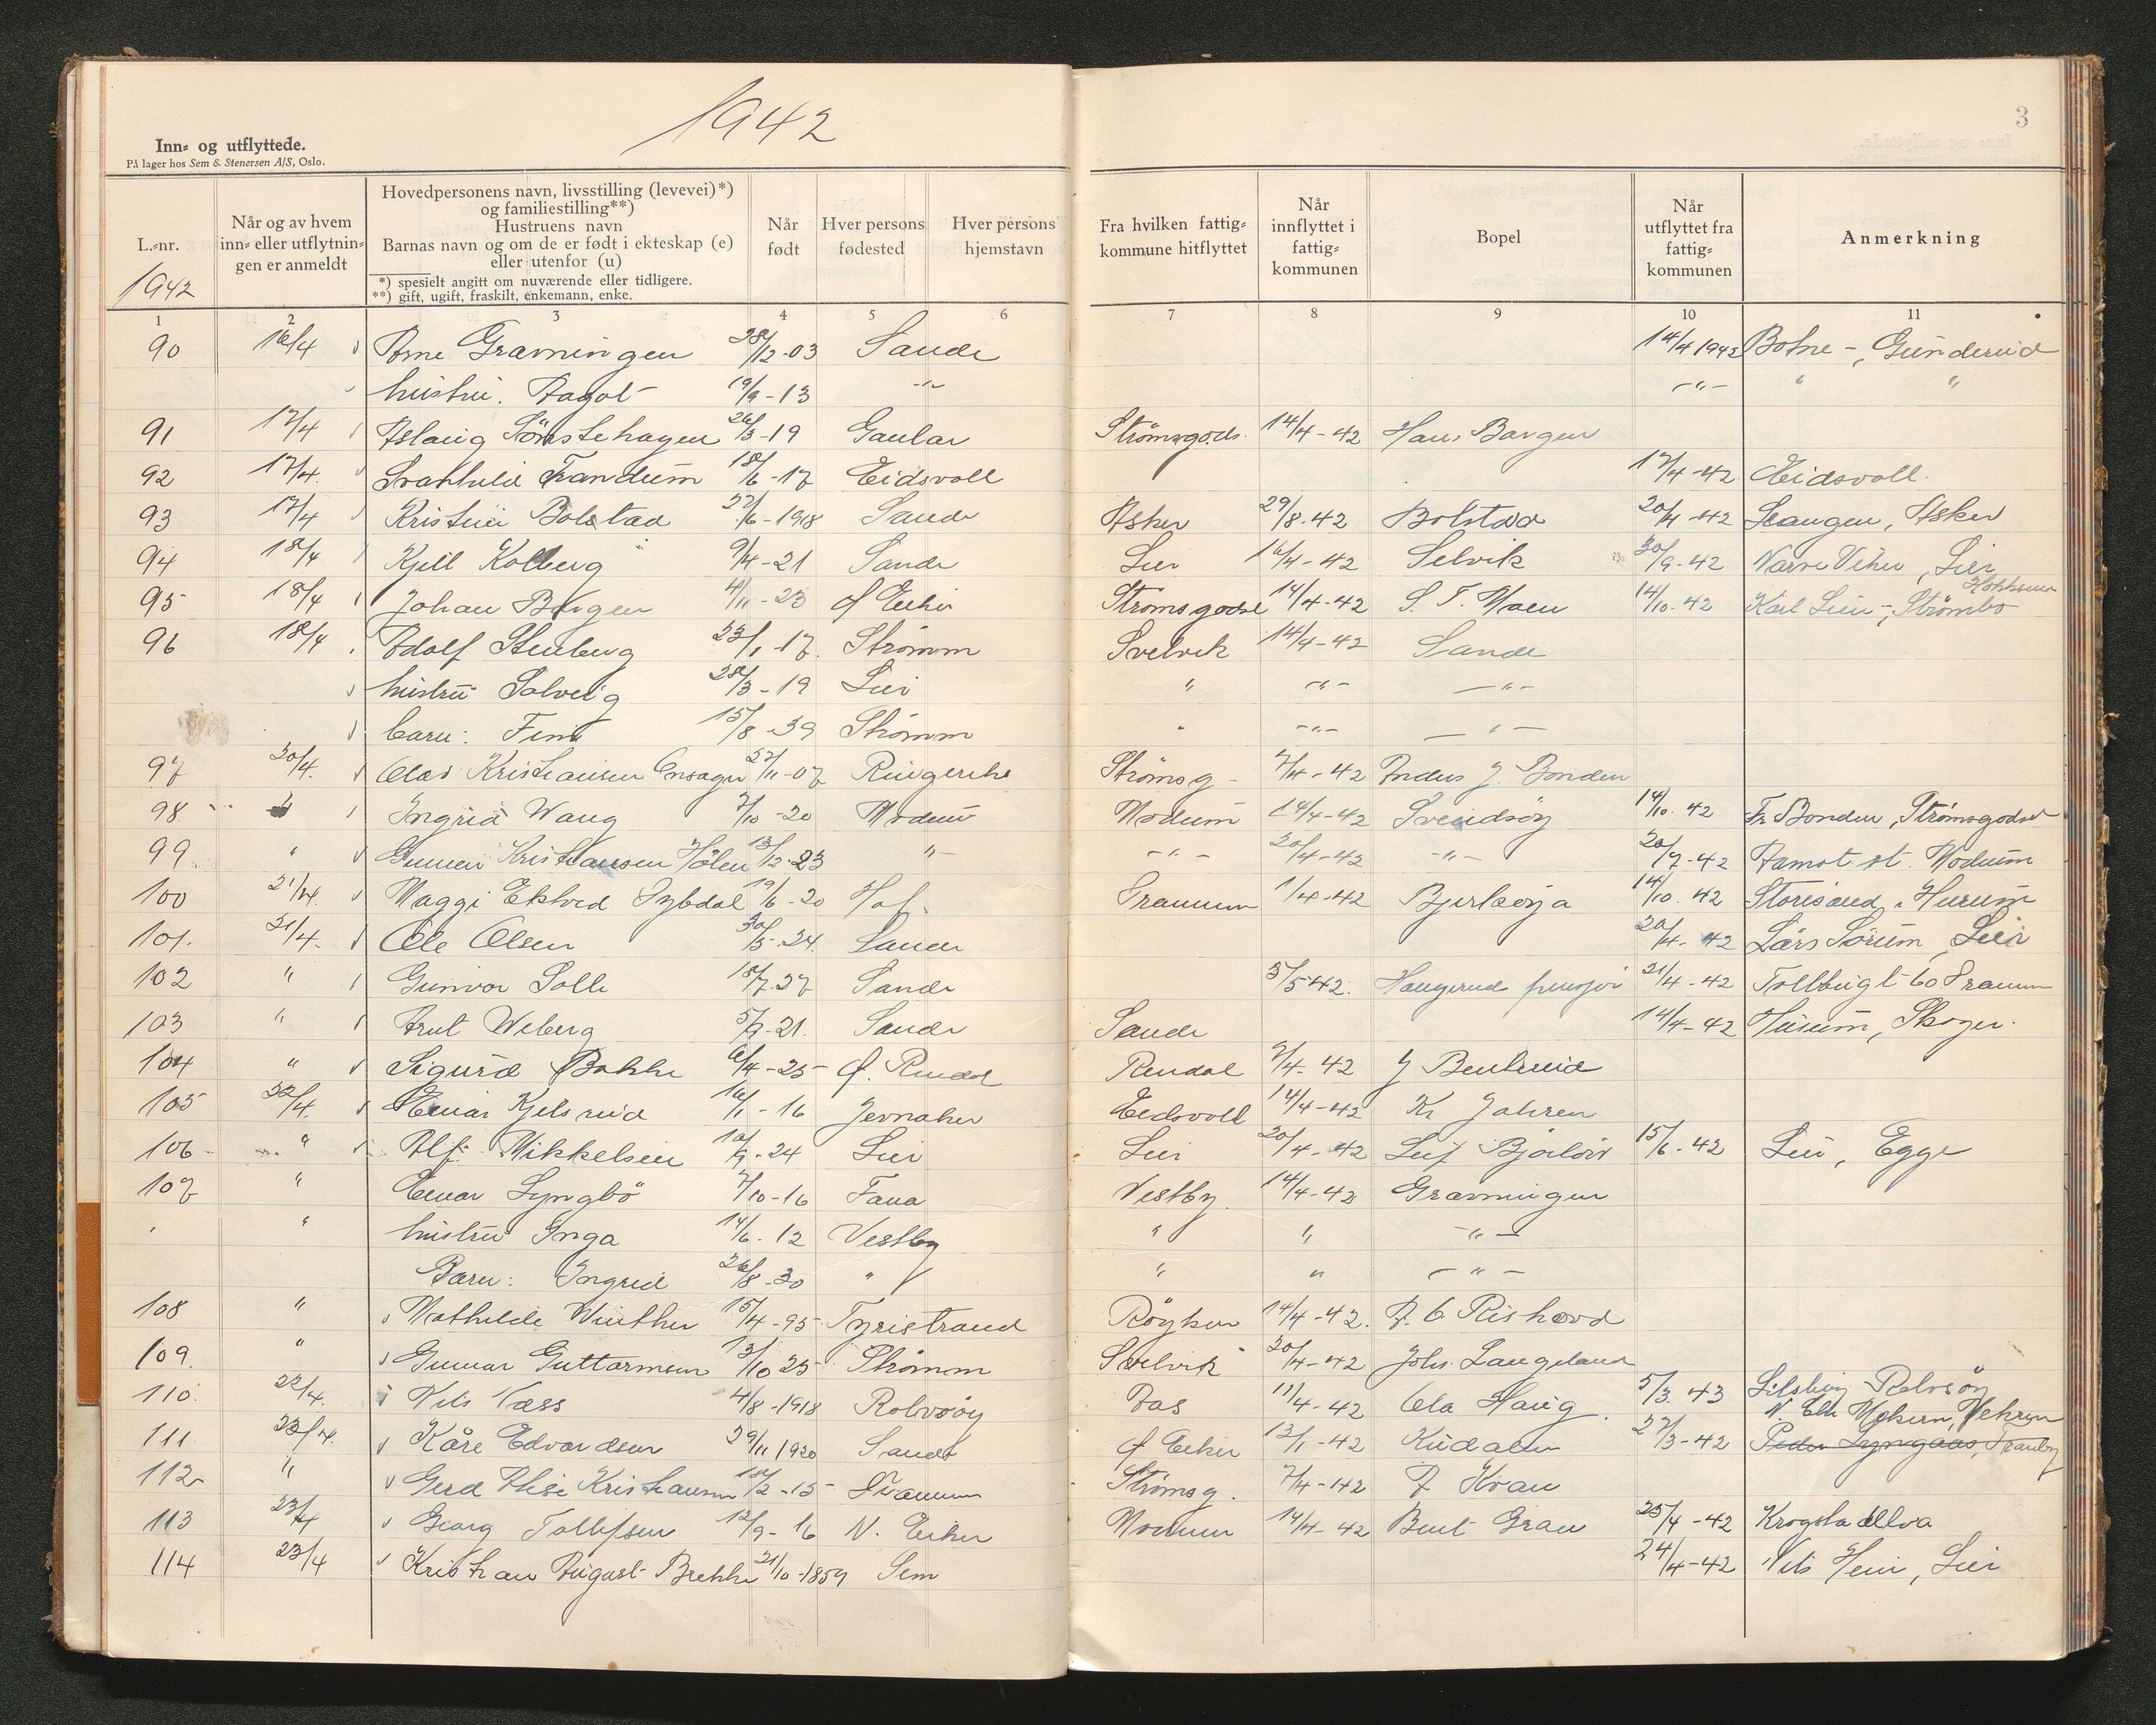 1942
3
Inn- og utflyttede.
På lager hos Sem & Stenersen A/S, Oslo.
L.-nr.
1942
Når og av hvem
inn- eller utflytnin-
gen er anmeldt
Hovedpersonens navn, livsstilling (levevei)*)
og familiestilling**)
Hustruens navn
Barnas navn og om de er født i ekteskap (e)
eller utenfor (u)
*) spesielt angitt om nuværende eller tidligere.
**) gift, ugift, fraskilt, enkemann, enke.
Når
født
Hver persons
fødested
Hver persons
hjemstavn
Fra hvilken fattig-
kommune hitflyttet
Når
innflyttet i
fattig-
kommunen
Bopel
Når
utflyttet fra
fattig-
kommunen
Anmerkning
1 2 3 4 5 6 7 8 9 10 11
90 16/4 Arne Gravningen 28/12-03 Sande 14/4 1942 Botne -, Gunderud
hustru. Aagot 19/9-13 -"- -"- " "
91 17/4 Aslaug 26/3-19 Gaular Strømsgods. 14/4-42 Hans Bargen
92 17/4. Frandum 18/6-17 Eidsvoll 17/4-42 Eidsvoll.
93 17/4 Bolstad 22/6-1918 Sande Asker 29/8.42 Bolstad 20/4-42 Asker
94 18/4 Kjell Kolberg 9/4-21 Sande Lier 16/4-42 Selvik 30/9-42 Lier
95 18/4 Johan 4/11-23 Ø Eiker Strømsgodset 14/4-42 S. T. Moen 14/10-42 Karl Lien -, Strømbo Hokksund
96 18/4 Adolf Stenberg 23/1-17. Strømm Svelvik 14/4-42 Sande
hustru Solveig 28/3-19 Lier " -"- -"-
barn: Finn 15/8-39 Strømm " -"- -"-
97 20/4. Olav Kristiansen 22/11-07 Ringerike Strømsg- 7/4-42 J. Bonden
98 " Ingrid Wang 7/10-20 Modum Modum 14/4-42 Svendsøy 14/10-42 Fr Bonden, Strømsgodset
99 " Gunnar Kristiansen Hølen 13/12-23 "- -"- 20/4-42 -"- 20/7-42 Aamot st. Modum
100 21/4. Maggi 19/6-20 Hof. Drammen 1/4-42 Bjerkøya 14/10.42 Storsand, Hurum
101. 21/4- Ole Olsen 30/5-24. Sande 20/4-42 Lars Sørum, Lier
102 " Gunvor Solli 18/7-27 Sande 3/5 42. Haugerud 21/4-42 Tollbugt 60 Drammen
103 " Arnt Wiberg 5/7-21. Sande Sande 14/4-42 Skoger.
104 " Sigurd Bakke 6/4-25 Ø. Rendal Rendal 9/4-42
105 22/4. Einar Kjelsrud 16/1-16 Jevnaker Eidsvoll 14/4-42 Kr Jahren
106 " Alf Mikkelsen 10/9-24 Lier Lier 20/4-42 Leif 15/6-42 Lier, Egge
107 " Einar Lyngbö 7/10-16 Fana Vestby. 14/4-42 Gravningen
" " hustru Inga 14/6-12 Vestby " " -"-
Barn: Ingrid 26/8-30 " " " -"-
108 " Mathilde Winther 15/4-95 Tyristrand Röyken 14/4-42. A. C Rishovd
109. " Gunnar Guttormsen 13/10 25 Strømm Svelvik 20/4-42 Johs. Langeland
110 22/4. Nils Næss 4/8-1918 Rolvsøy Aas 11/4-42 Ola Haug. 5/3.43 Rolvsøy
111 23/4. Kåre Edvardsen 29/11 1920 Sande Ø Eiker 13/1-42 27/3-42 Peder Lyngaas, Tranby
112 " Gerd Kristiansen 18/2-15 Drammen Strømsg. 7/4-42 A Kvan
113 23/4 Georg Tollefsen 12/9-16 N. Eiker Modum 14/4-42 Bent Gran 25/4-42 Krogstadelva
114 23/4 Kristian August Brekke 21/10-1859 Sem 24/4-42 Lier